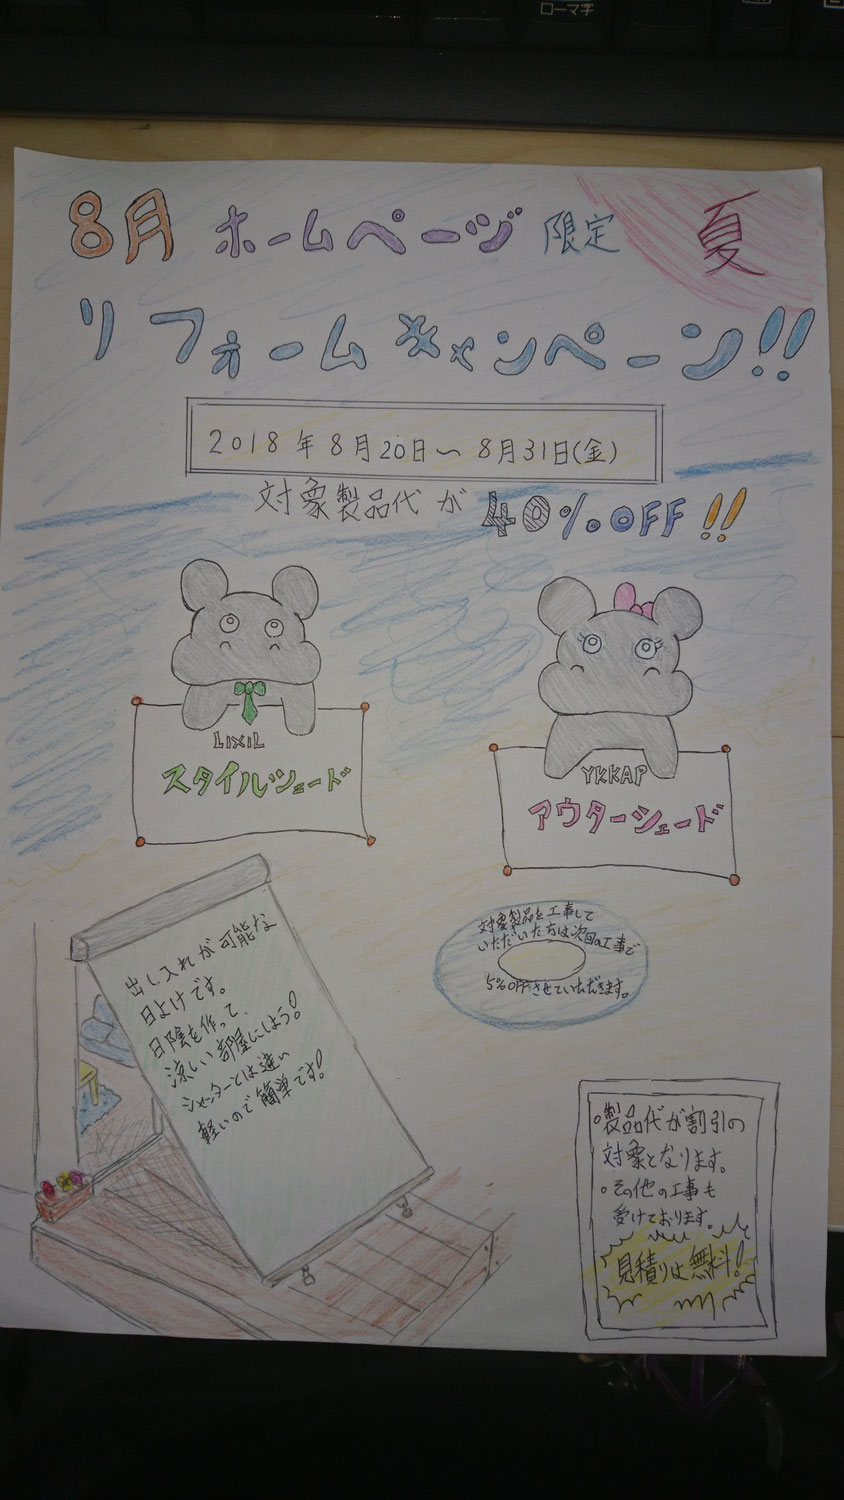 ローマ字
8月 ホームページ 限定 夏
リフォームキャンペーン!!
2018年8月20日〜8月31日(金)
対象製品代が 40%OFF!!
LIXIL
スタイルシェード
YKKAP
アウターシェード
出し入れが可能な
日よけです。
日陰を作って、
涼しい部屋にしよう!
シャッターとは違い
軽いので簡単です!
対象製品を工事して
いただいた方は次回の工事で
5%OFFさせていただきます。
○製品代が割引の
対象となります。
○その他の工事も
受けております。
見積りは無料!